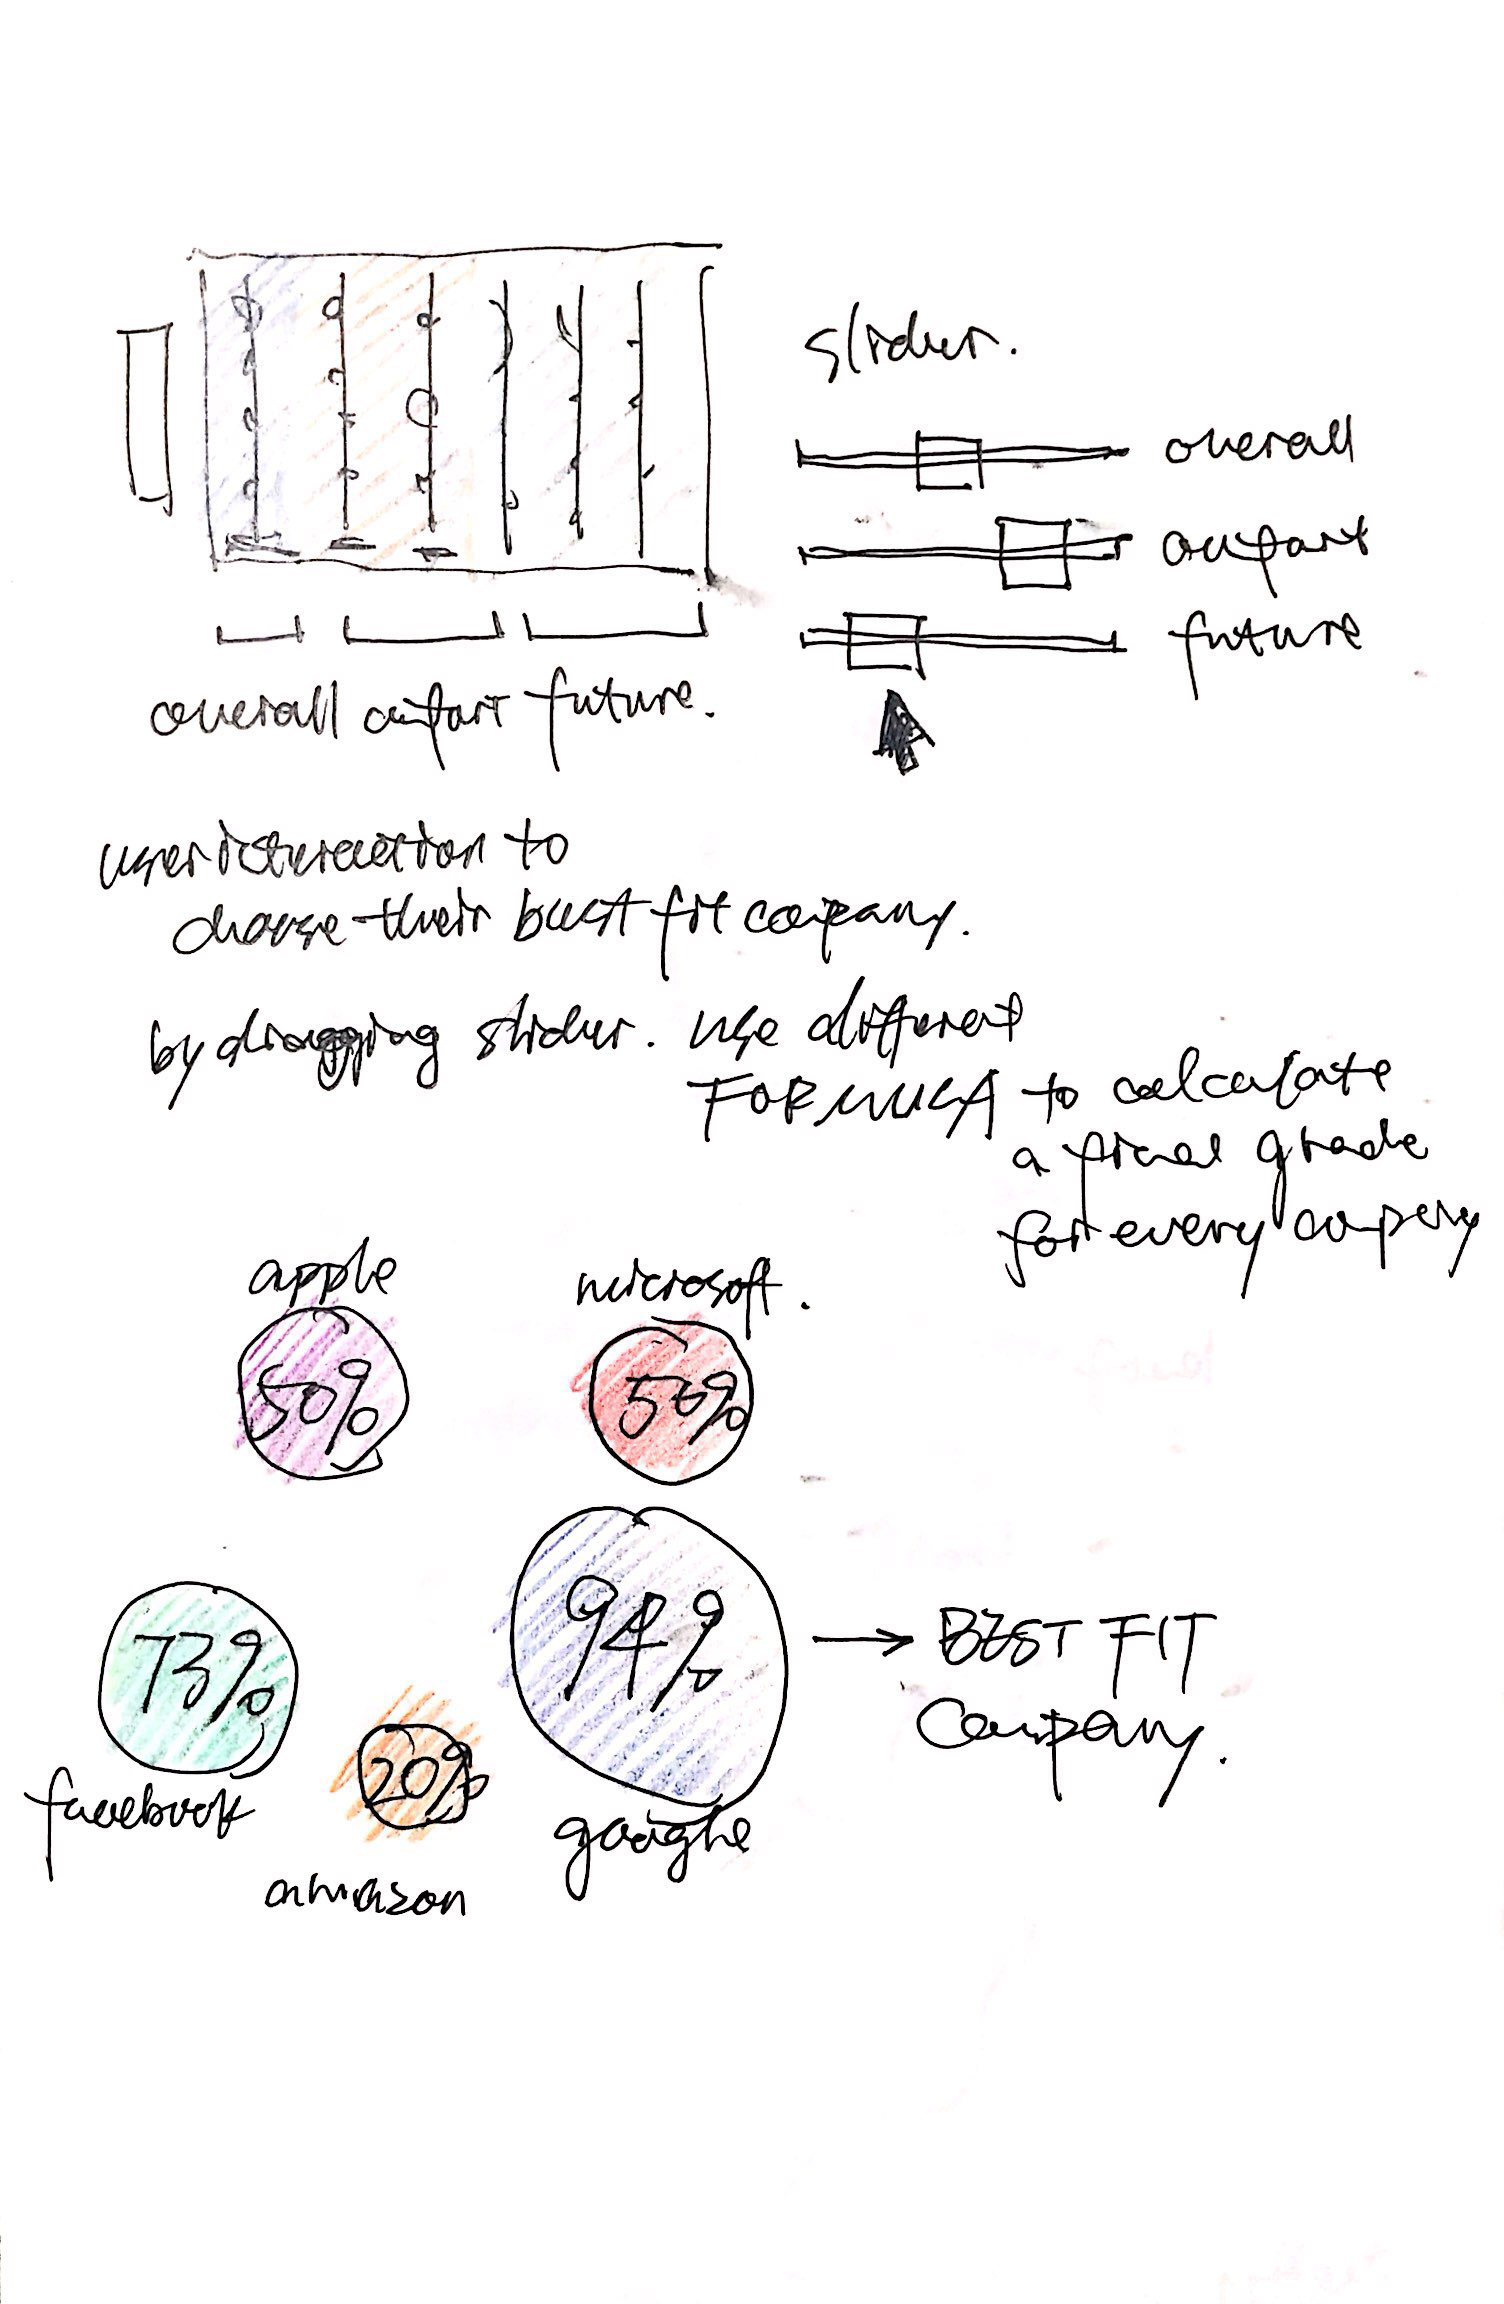 slider.
overall
comfort
future
overall comfort future.
user interaction to
choose their best fit company.
by dragging slider. use different
FORMULA to calculate
a final grade
for every company
apple
microsoft.
50%
50%
73%
94%
→ BEST FIT
Company.
20%
facebook
google
amazon